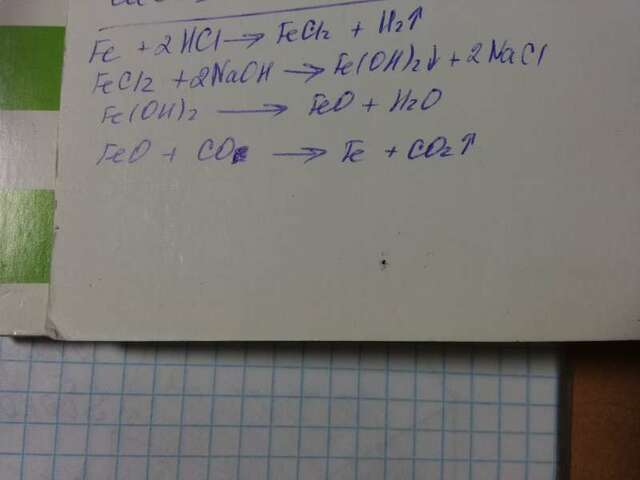 Fe + 2HCl → FeCl2 + H2↑
FeCl2 + 2NaOH → Fe(OH)2↓ + 2NaCl
Fe(OH)2 → FeO + H2O
FeO + CO → Fe + CO2↑